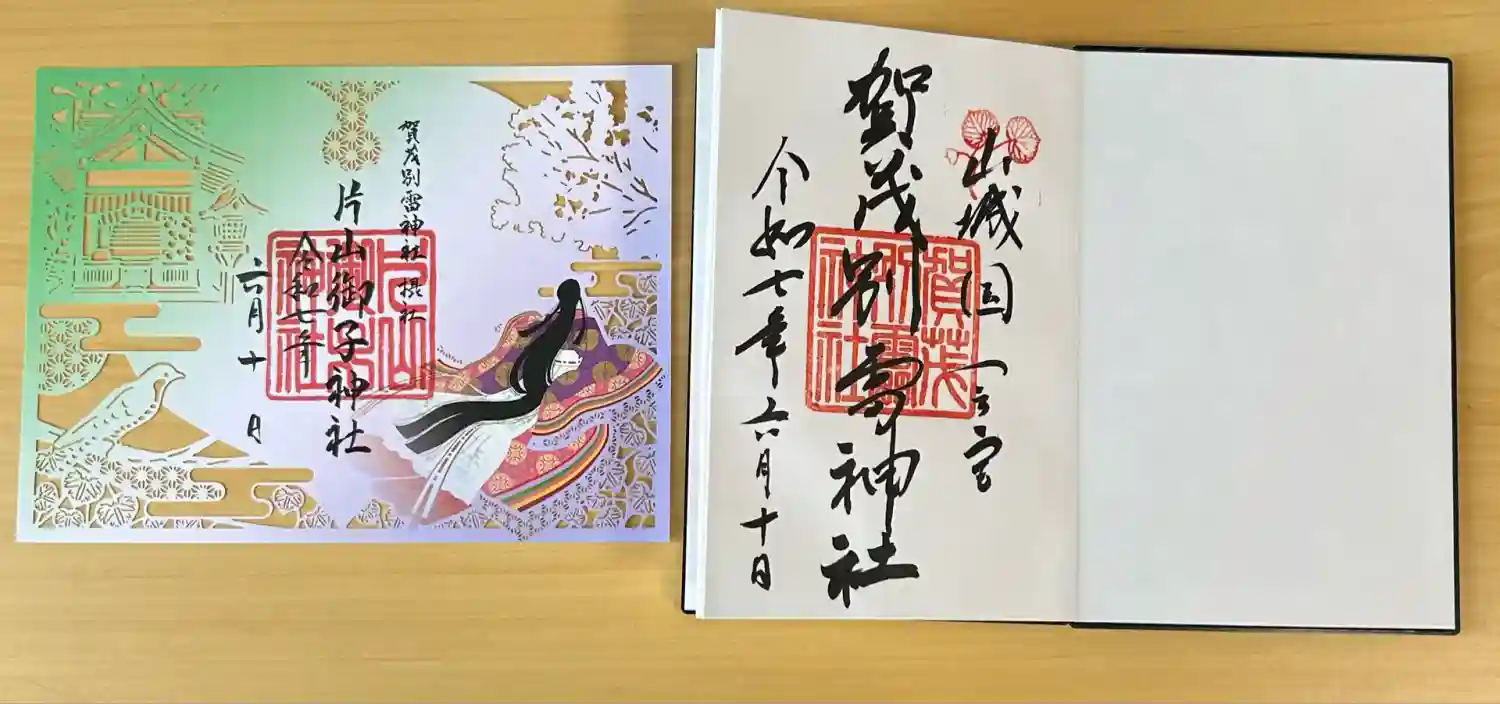 賀茂別雷神社 摂社
片山御子神社
令和七年
六月十日
片山御子神社
山城国一之宮
賀茂別雷神社
令和七年六月十日
賀茂別雷神社